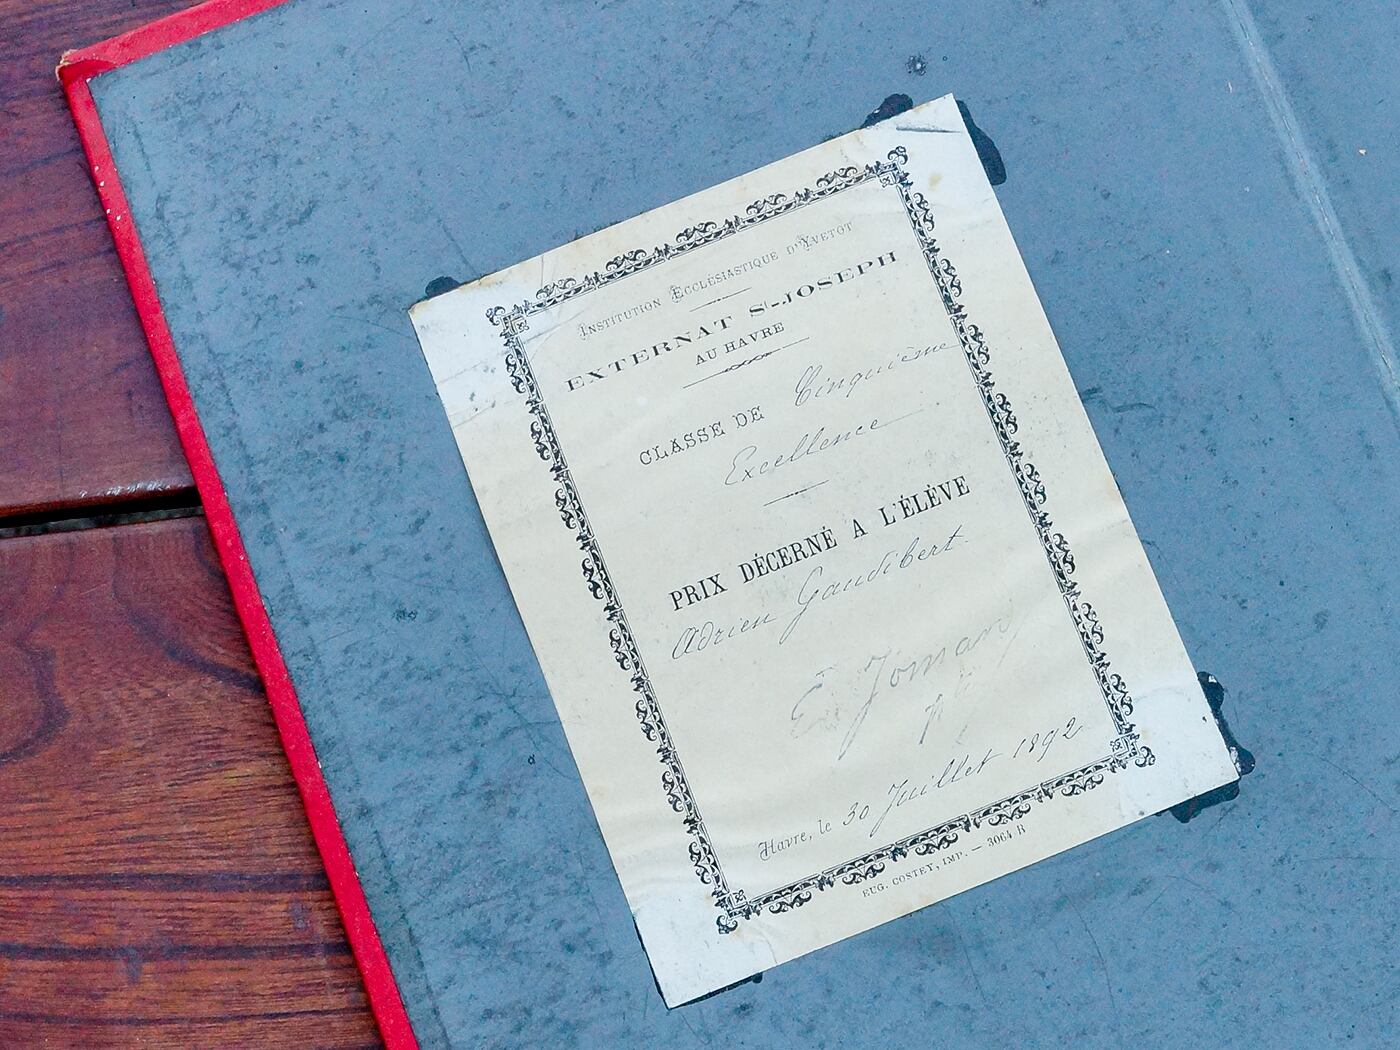 Institution Ecclésiastique d'Yvetot
EXTERNAT St-JOSEPH
AU HAVRE
CLASSE DE Cinquième
Excellence
PRIX DÉCERNÉ A L'ÉLÈVE
Adrien Gaudibert.
Havre, le 30 Juillet 1892
EUG. COSTEY, IMP. — 3064 R